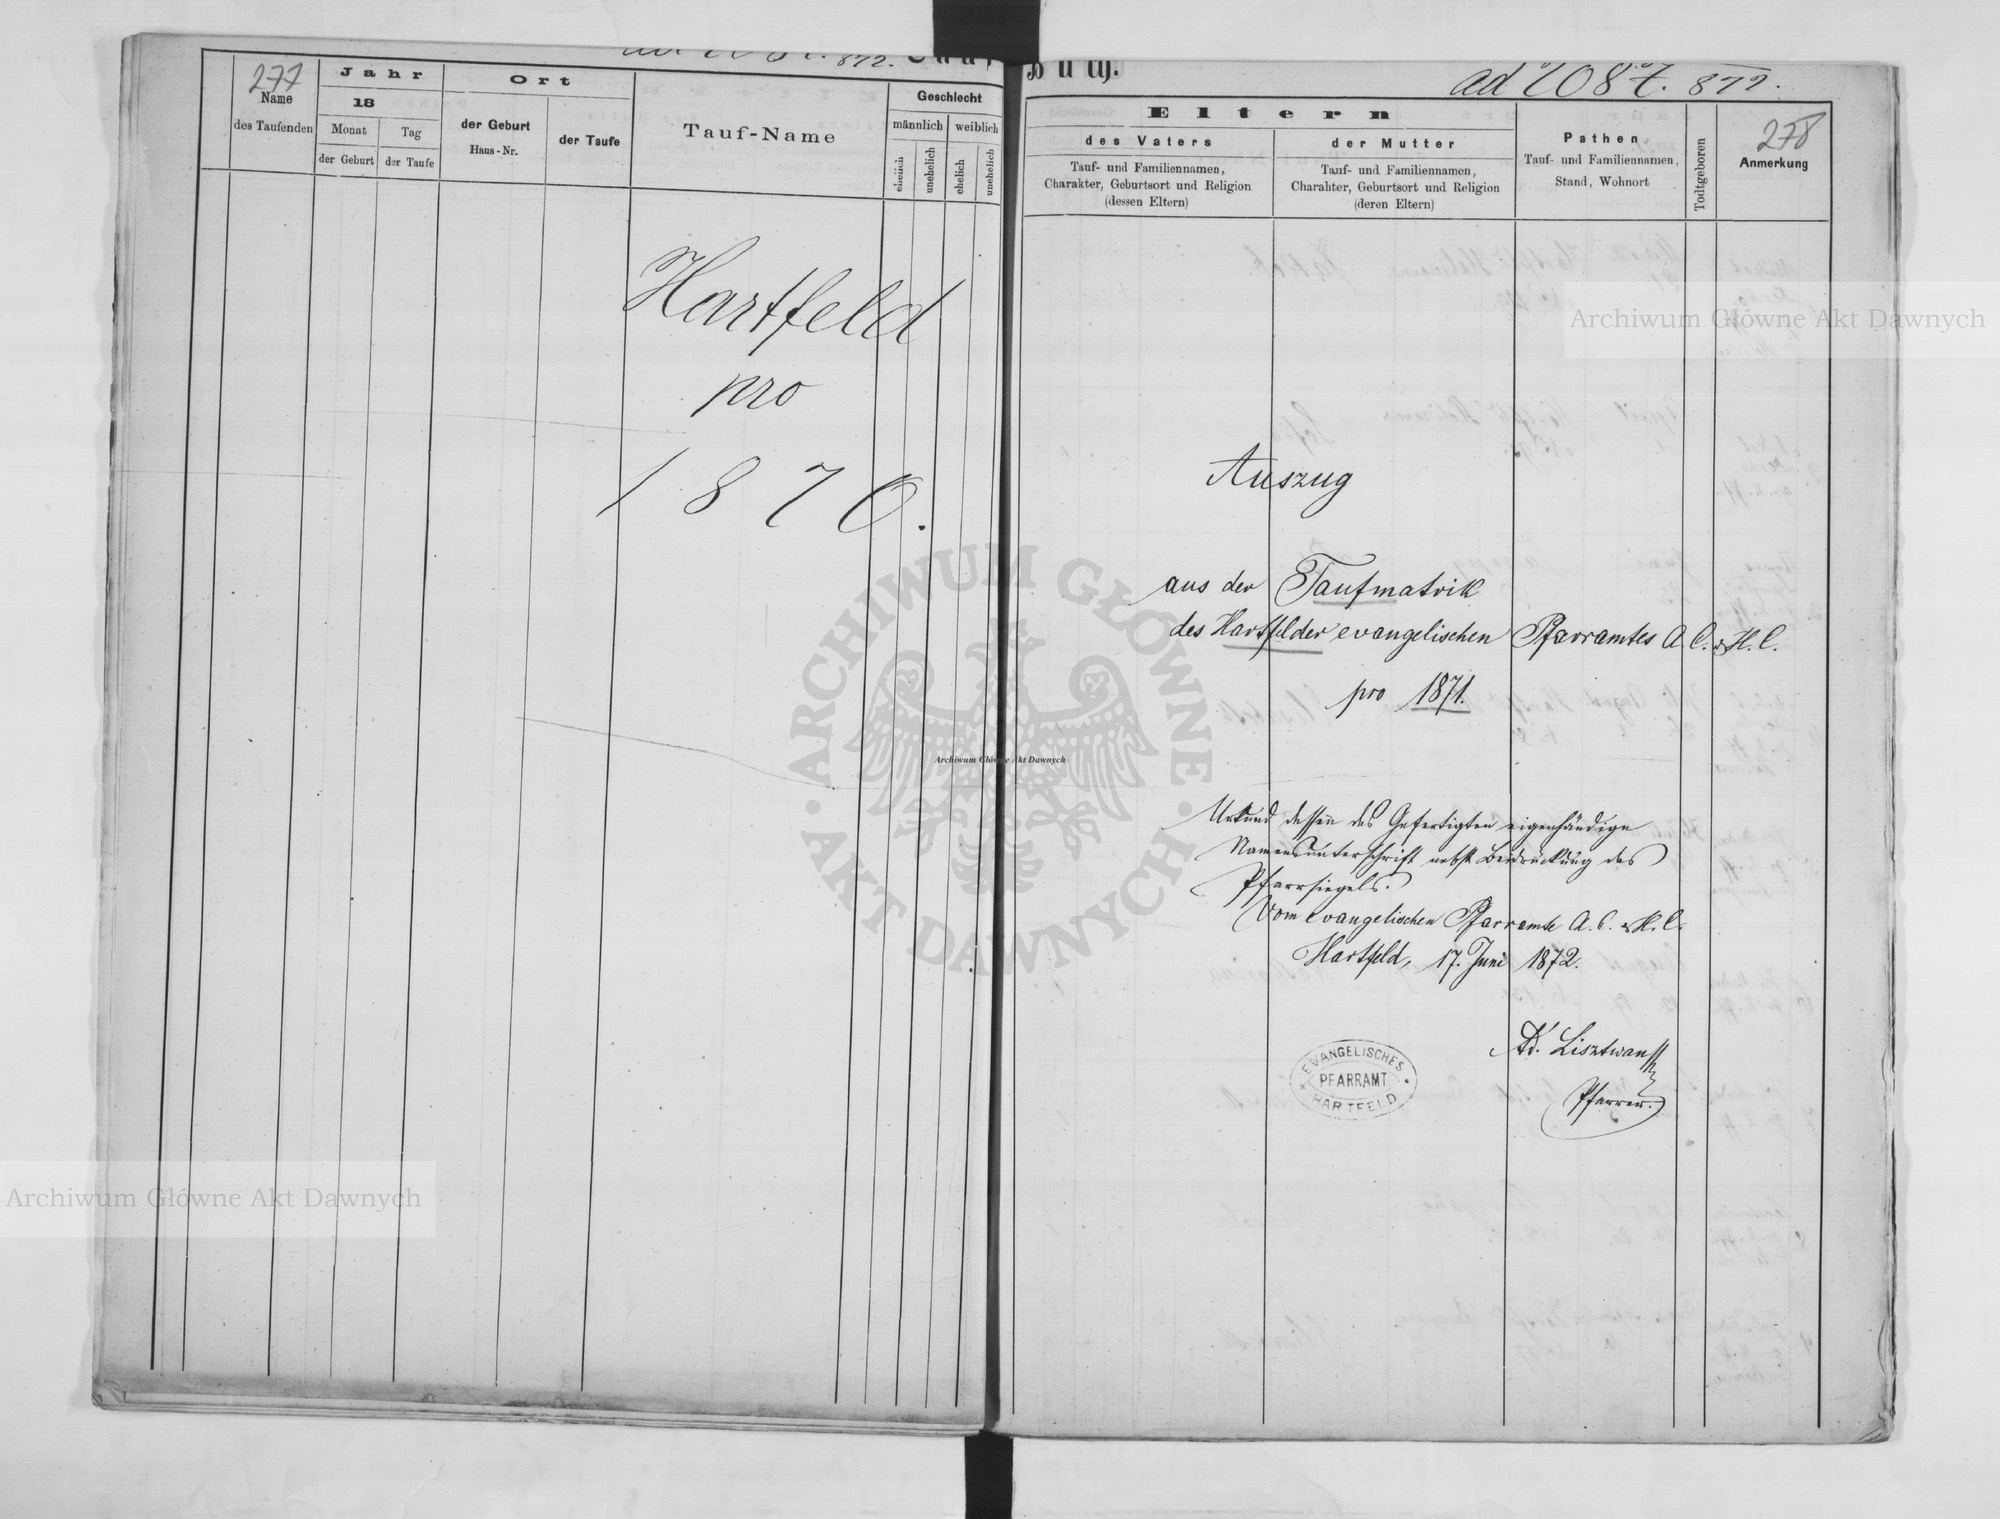 277
Name
des Taufenden
Jahr
18
Monat
der Geburt
Tag
der Taufe
Ort
der Geburt
Haus-Nr.
der Taufe
Tauf-Name
Geschlecht
männlich
weiblich
ehelich
unehelich
ehelich
unehelich
872.
Hartfeld
pro
1870.
Buch.
ad 1087. 872.
Eltern
des Vaters
Tauf- und Familiennamen,
Charakter, Geburtsort und Religion
(dessen Eltern)
der Mutter
Tauf- und Familiennamen,
Charakter, Geburtsort und Religion
(deren Eltern)
Pathen
Tauf- und Familiennamen,
Stand, Wohnort
Todtgeboren
278
Anmerkung
Auszug
aus der Taufmatrik
des Hartfelder evangelischen Pfarramtes A. C. & H. C.
pro 1871.
Urkund dessen des Gefertigten eigenhändige
Namensunterschrift nebst Beidrückung des
Pfarrsiegels.
Vom evangelischen Pfarramte A. C. & H. C.
Hartfeld, 17. Juni 1872.
Ad. Lisztwan
Pfarrer.
EVANGELISCHES
PFARRAMT
HARTFELD
Archiwum Główne Akt Dawnych
ARCHIWUM GŁÓWNE AKT DAWNYCH
Archiwum Główne Akt Dawnych
Archiwum Główne Akt Dawnych